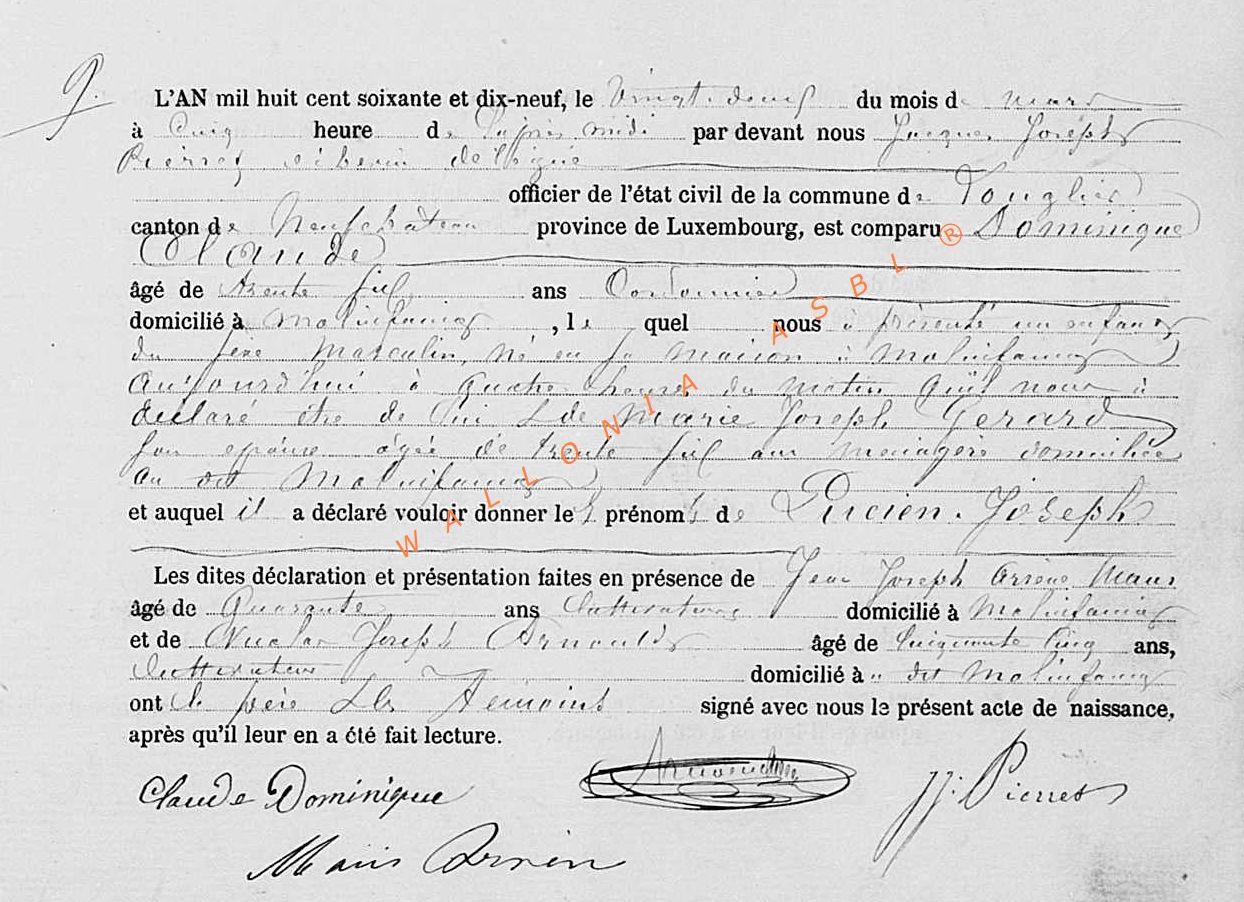 9.
L'AN mil huit cent soixante et dix-neuf, le Vingt-deux du mois de mars
à Cinq heure de l'après midi par devant nous Jacques Joseph
Pierret échevin délégué
officier de l'état civil de la commune de Longlier
canton de Neufchâteau province de Luxembourg, est comparu Dominique
Claude
âgé de trente six ans Cordonnier
domicilié à Molinfaing, le quel nous à présenté un enfant
du sexe Masculin, né en sa maison à Molinfaing
aujourd'hui à quatre heures du matin qu'il nous à
déclaré être de lui & de Marie Joseph Gerard
son épouse âgée de trente six ans ménagère domiciliée
au dit Molinfaing
et auquel il a déclaré vouloir donner les prénoms de Lucien. Joseph
Les dites déclaration et présentation faites en présence de Jean Joseph Arsène Maus
âgé de Quarante ans Cultivateur domicilié à Molinfaing
et de Nicolas Joseph Arnould âgé de Cinquante Cinq ans,
Cultivateur domicilié à dit Molinfaing
ont le père & les témoins signé avec nous le présent acte de naissance,
après qu'il leur en a été fait lecture.
Claude Dominique J.J. Pierret
Maus Arsèn
WALLONIA ASBL ®